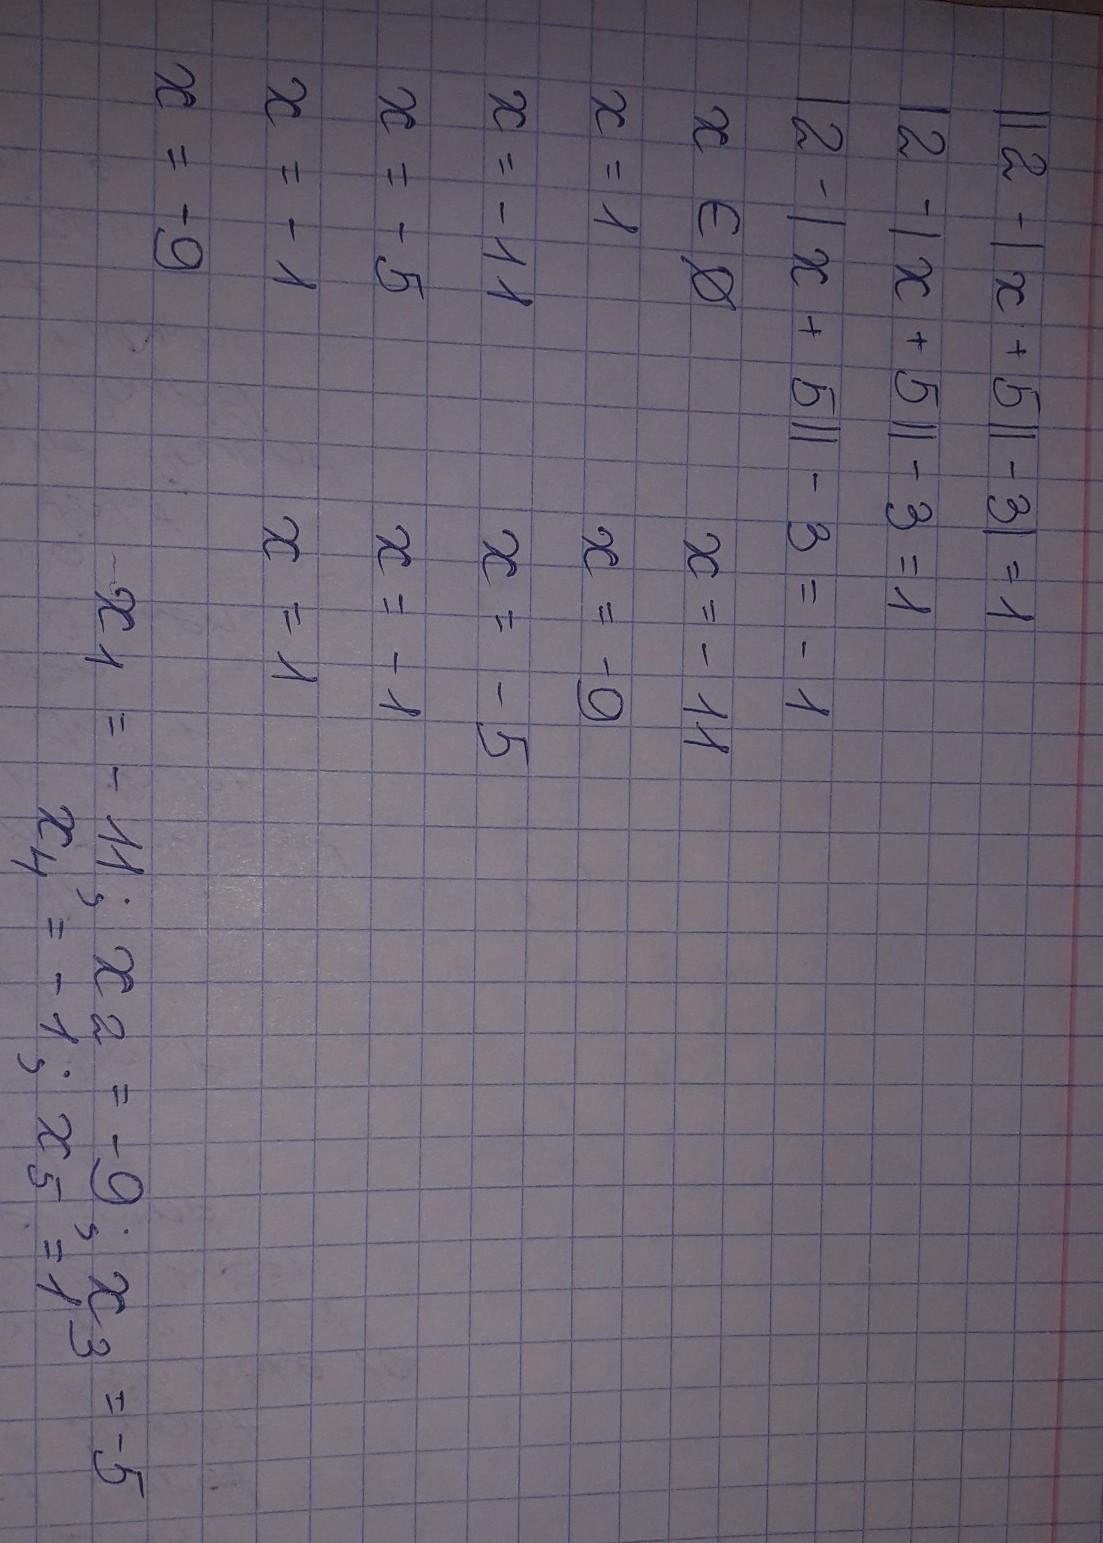 ||2-|x+5||-3|=1
|2-|x+5||-3=1
|2-|x+5||-3=-1
x ∈ Ø
x=1
x=-11
x=-5
x=-1
x=-9
x=-11
x=-9
x=-5
x=-1
x=1
x1=-11; x2=-9; x3=-5
x4=-1; x5=1